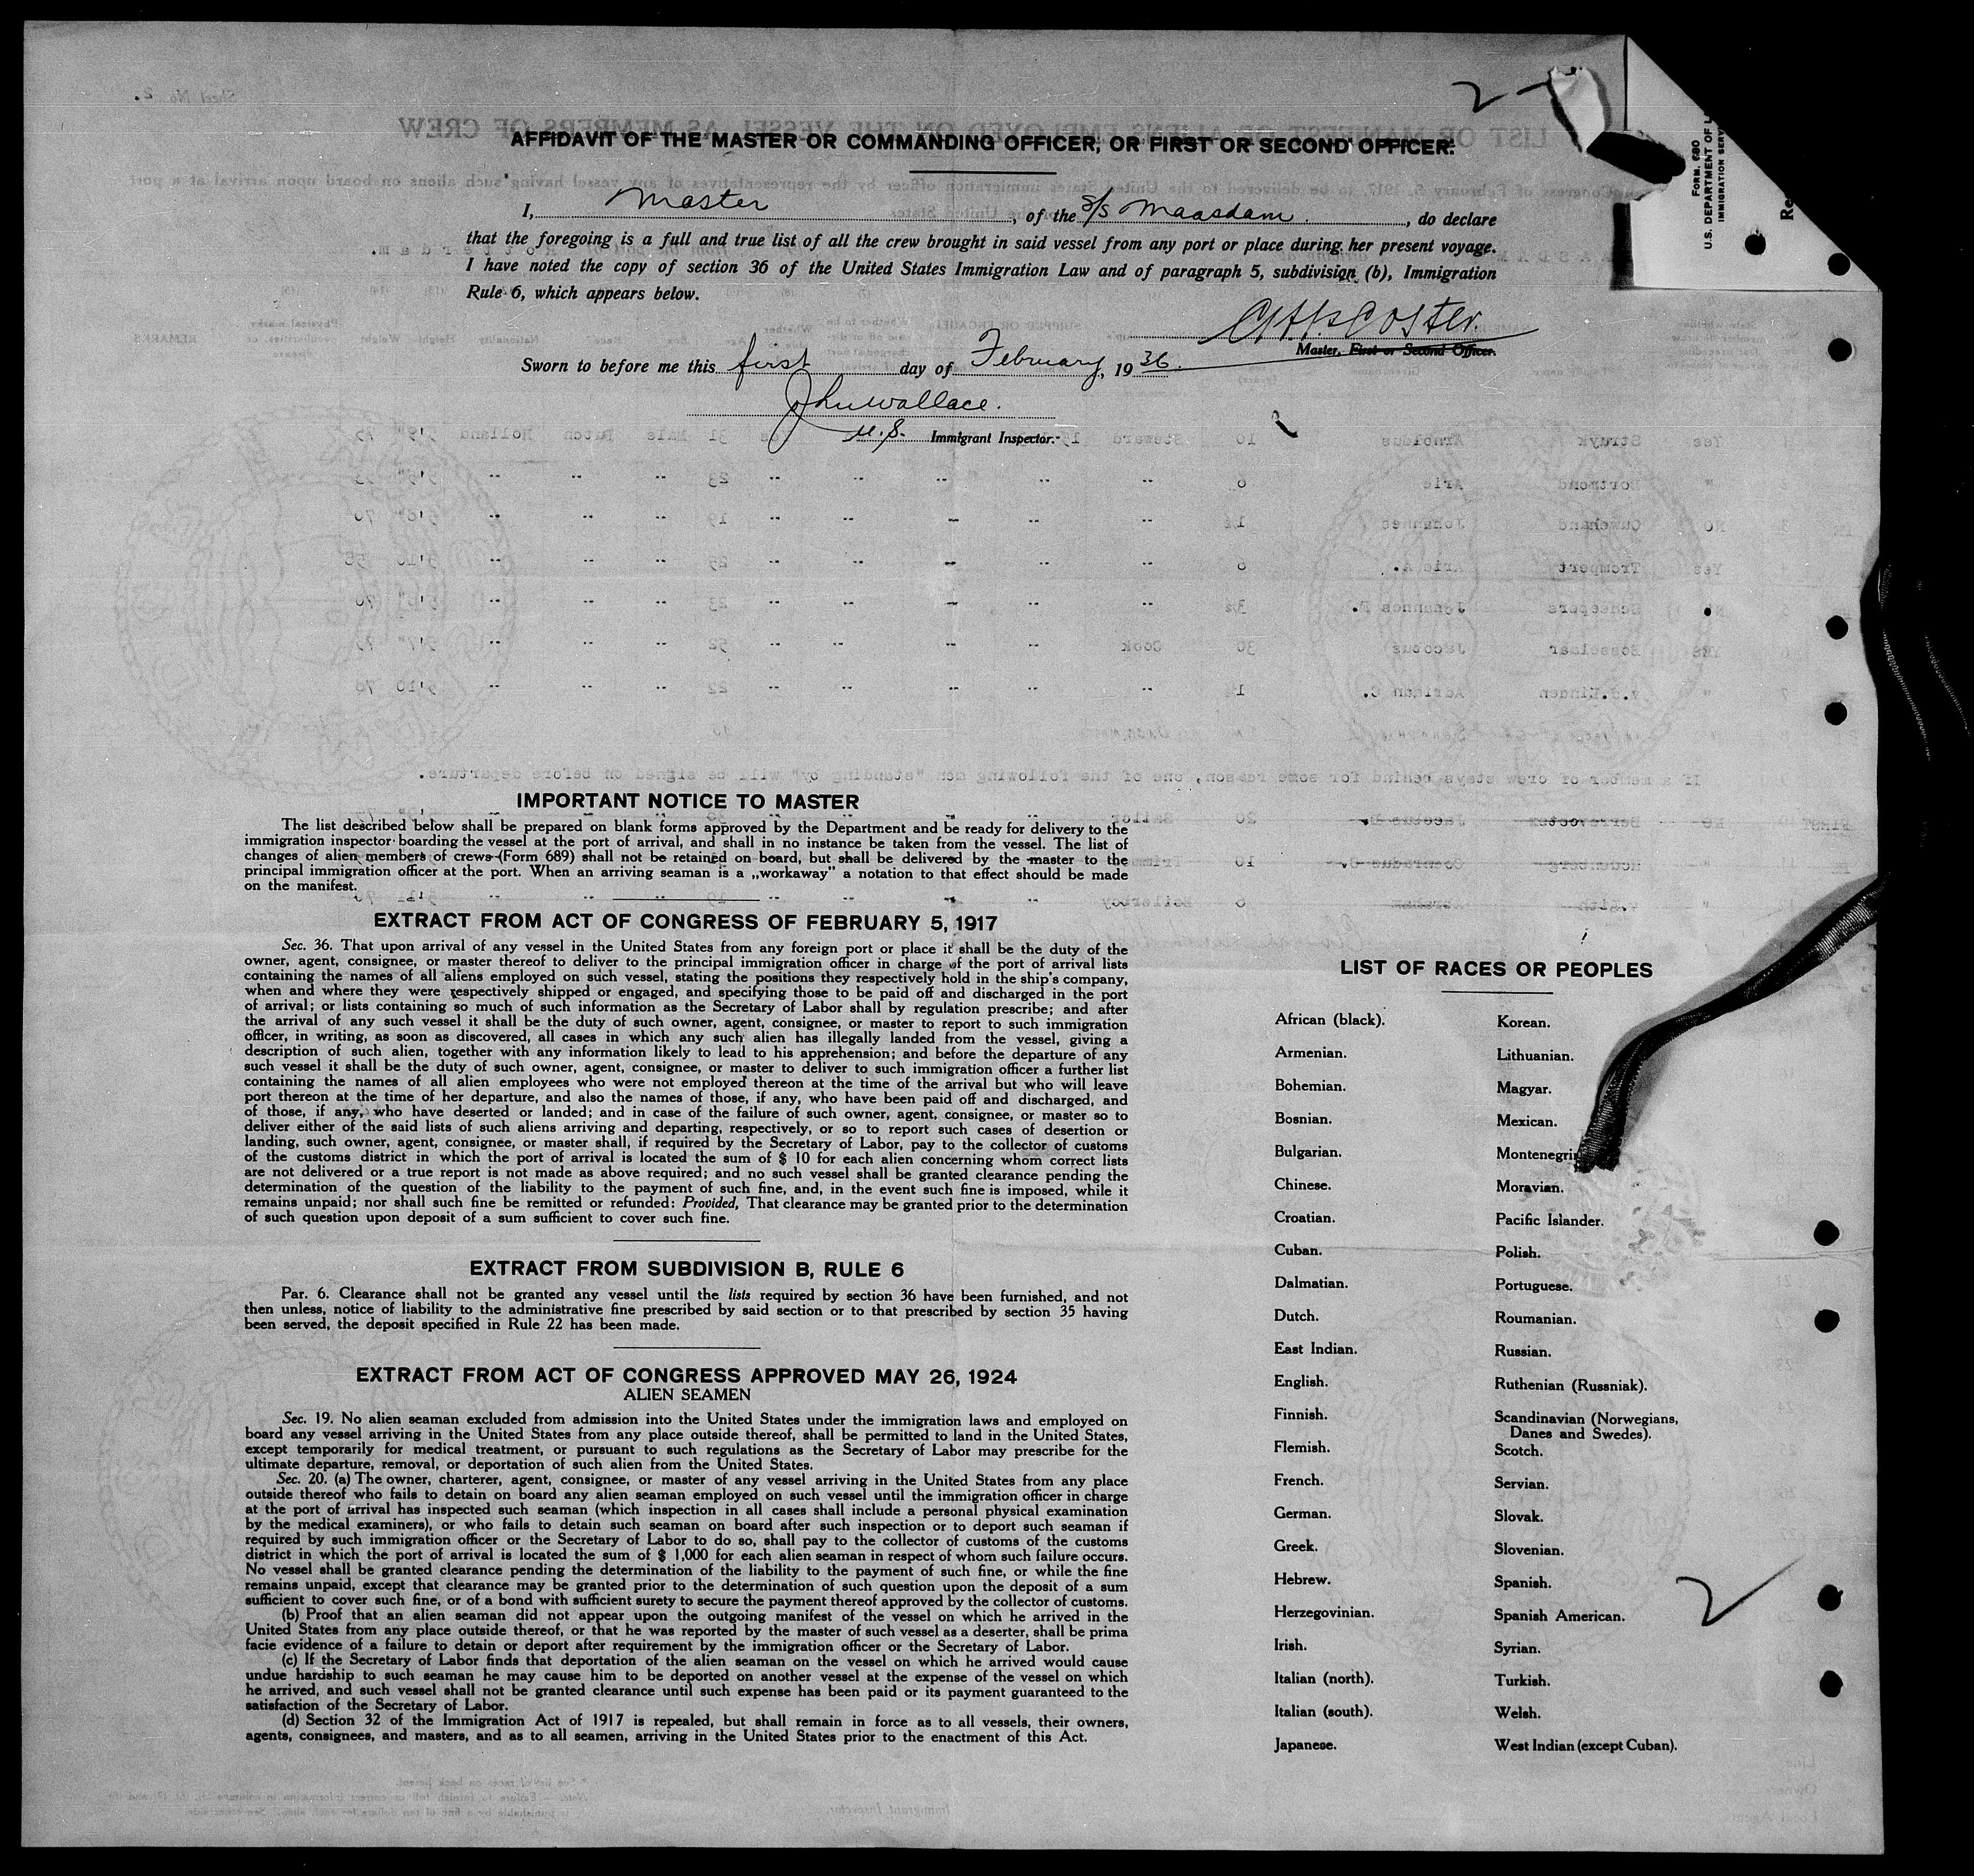 2
AFFIDAVIT OF THE MASTER OR COMMANDING OFFICER, OR FIRST OR SECOND OFFICER.
I, Master, of the S/S Maasdam, do declare
that the foregoing is a full and true list of all the crew brought in said vessel from any port or place during her present voyage.
I have noted the copy of section 36 of the United States Immigration Law and of paragraph 5, subdivision (b), Immigration
Rule 6, which appears below.
Coster.
Master, First or Second Officer.
Sworn to before me this first day of February, 1936.
Jhn Wallace.
U.S. Immigrant Inspector.
FORM. 680
U.S. DEPARTMENT OF L
IMMIGRATION SERV
Re
IMPORTANT NOTICE TO MASTER
The list described below shall be prepared on blank forms approved by the Department and be ready for delivery to the
immigration inspector boarding the vessel at the port of arrival, and shall in no instance be taken from the vessel. The list of
changes of alien members of crews (Form 689) shall not be retained on board, but shall be delivered by the master to the
principal immigration officer at the port. When an arriving seaman is a „workaway" a notation to that effect should be made
on the manifest.
EXTRACT FROM ACT OF CONGRESS OF FEBRUARY 5, 1917
Sec. 36. That upon arrival of any vessel in the United States from any foreign port or place it shall be the duty of the
owner, agent, consignee, or master thereof to deliver to the principal immigration officer in charge of the port of arrival lists
containing the names of all aliens employed on such vessel, stating the positions they respectively hold in the ship's company,
when and where they were respectively shipped or engaged, and specifying those to be paid off and discharged in the port
of arrival; or lists containing so much of such information as the Secretary of Labor shall by regulation prescribe; and after
the arrival of any such vessel it shall be the duty of such owner, agent, consignee, or master to report to such immigration
officer, in writing, as soon as discovered, all cases in which any such alien has illegally landed from the vessel, giving a
description of such alien, together with any information likely to lead to his apprehension; and before the departure of any
such vessel it shall be the duty of such owner, agent, consignee, or master to deliver to such immigration officer a further list
containing the names of all alien employees who were not employed thereon at the time of the arrival but who will leave
port thereon at the time of her departure, and also the names of those, if any, who have been paid off and discharged, and
of those, if any, who have deserted or landed; and in case of the failure of such owner, agent, consignee, or master so to
deliver either of the said lists of such aliens arriving and departing, respectively, or so to report such cases of desertion or
landing, such owner, agent, consignee, or master shall, if required by the Secretary of Labor, pay to the collector of customs
of the customs district in which the port of arrival is located the sum of $ 10 for each alien concerning whom correct lists
are not delivered or a true report is not made as above required; and no such vessel shall be granted clearance pending the
determination of the question of the liability to the payment of such fine, and, in the event such fine is imposed, while it
remains unpaid; nor shall such fine be remitted or refunded: Provided, That clearance may be granted prior to the determination
of such question upon deposit of a sum sufficient to cover such fine.
EXTRACT FROM SUBDIVISION B, RULE 6
Par. 6. Clearance shall not be granted any vessel until the lists required by section 36 have been furnished, and not
then unless, notice of liability to the administrative fine prescribed by said section or to that prescribed by section 35 having
been served, the deposit specified in Rule 22 has been made.
EXTRACT FROM ACT OF CONGRESS APPROVED MAY 26, 1924
ALIEN SEAMEN
Sec. 19. No alien seaman excluded from admission into the United States under the immigration laws and employed on
board any vessel arriving in the United States from any place outside thereof, shall be permitted to land in the United States,
except temporarily for medical treatment, or pursuant to such regulations as the Secretary of Labor may prescribe for the
ultimate departure, removal, or deportation of such alien from the United States.
Sec. 20. (a) The owner, charterer, agent, consignee, or master of any vessel arriving in the United States from any place
outside thereof who fails to detain on board any alien seaman employed on such vessel until the immigration officer in charge
at the port of arrival has inspected such seaman (which inspection in all cases shall include a personal physical examination
by the medical examiners), or who fails to detain such seaman on board after such inspection or to deport such seaman if
required by such immigration officer or the Secretary of Labor to do so, shall pay to the collector of customs of the customs
district in which the port of arrival is located the sum of $ 1,000 for each alien seaman in respect of whom such failure occurs.
No vessel shall be granted clearance pending the determination of the liability to the payment of such fine, or while the fine
remains unpaid, except that clearance may be granted prior to the determination of such question upon the deposit of a sum
sufficient to cover such fine, or of a bond with sufficient surety to secure the payment thereof approved by the collector of customs.
(b) Proof that an alien seaman did not appear upon the outgoing manifest of the vessel on which he arrived in the
United States from any place outside thereof, or that he was reported by the master of such vessel as a deserter, shall be prima
facie evidence of a failure to detain or deport after requirement by the immigration officer or the Secretary of Labor.
(c) If the Secretary of Labor finds that deportation of the alien seaman on the vessel on which he arrived would cause
undue hardship to such seaman he may cause him to be deported on another vessel at the expense of the vessel on which
he arrived, and such vessel shall not be granted clearance until such expense has been paid or its payment guaranteed to the
satisfaction of the Secretary of Labor.
(d) Section 32 of the Immigration Act of 1917 is repealed, but shall remain in force as to all vessels, their owners,
agents, consignees, and masters, and as to all seamen, arriving in the United States prior to the enactment of this Act.
LIST OF RACES OR PEOPLES
African (black).
Armenian.
Bohemian.
Bosnian.
Bulgarian.
Chinese.
Croatian.
Cuban.
Dalmatian.
Dutch.
East Indian.
English.
Finnish.
Flemish.
French.
German.
Greek.
Hebrew.
Herzegovinian.
Irish.
Italian (north).
Italian (south).
Japanese.
Korean.
Lithuanian.
Magyar.
Mexican.
Montenegri
Moravian.
Pacific Islander.
Polish.
Portuguese.
Roumanian.
Russian.
Ruthenian (Russniak).
Scandinavian (Norwegians,
Danes and Swedes).
Scotch.
Servian.
Slovak.
Slovenian.
Spanish.
Spanish American.
Syrian.
Turkish.
Welsh.
West Indian (except Cuban).
2